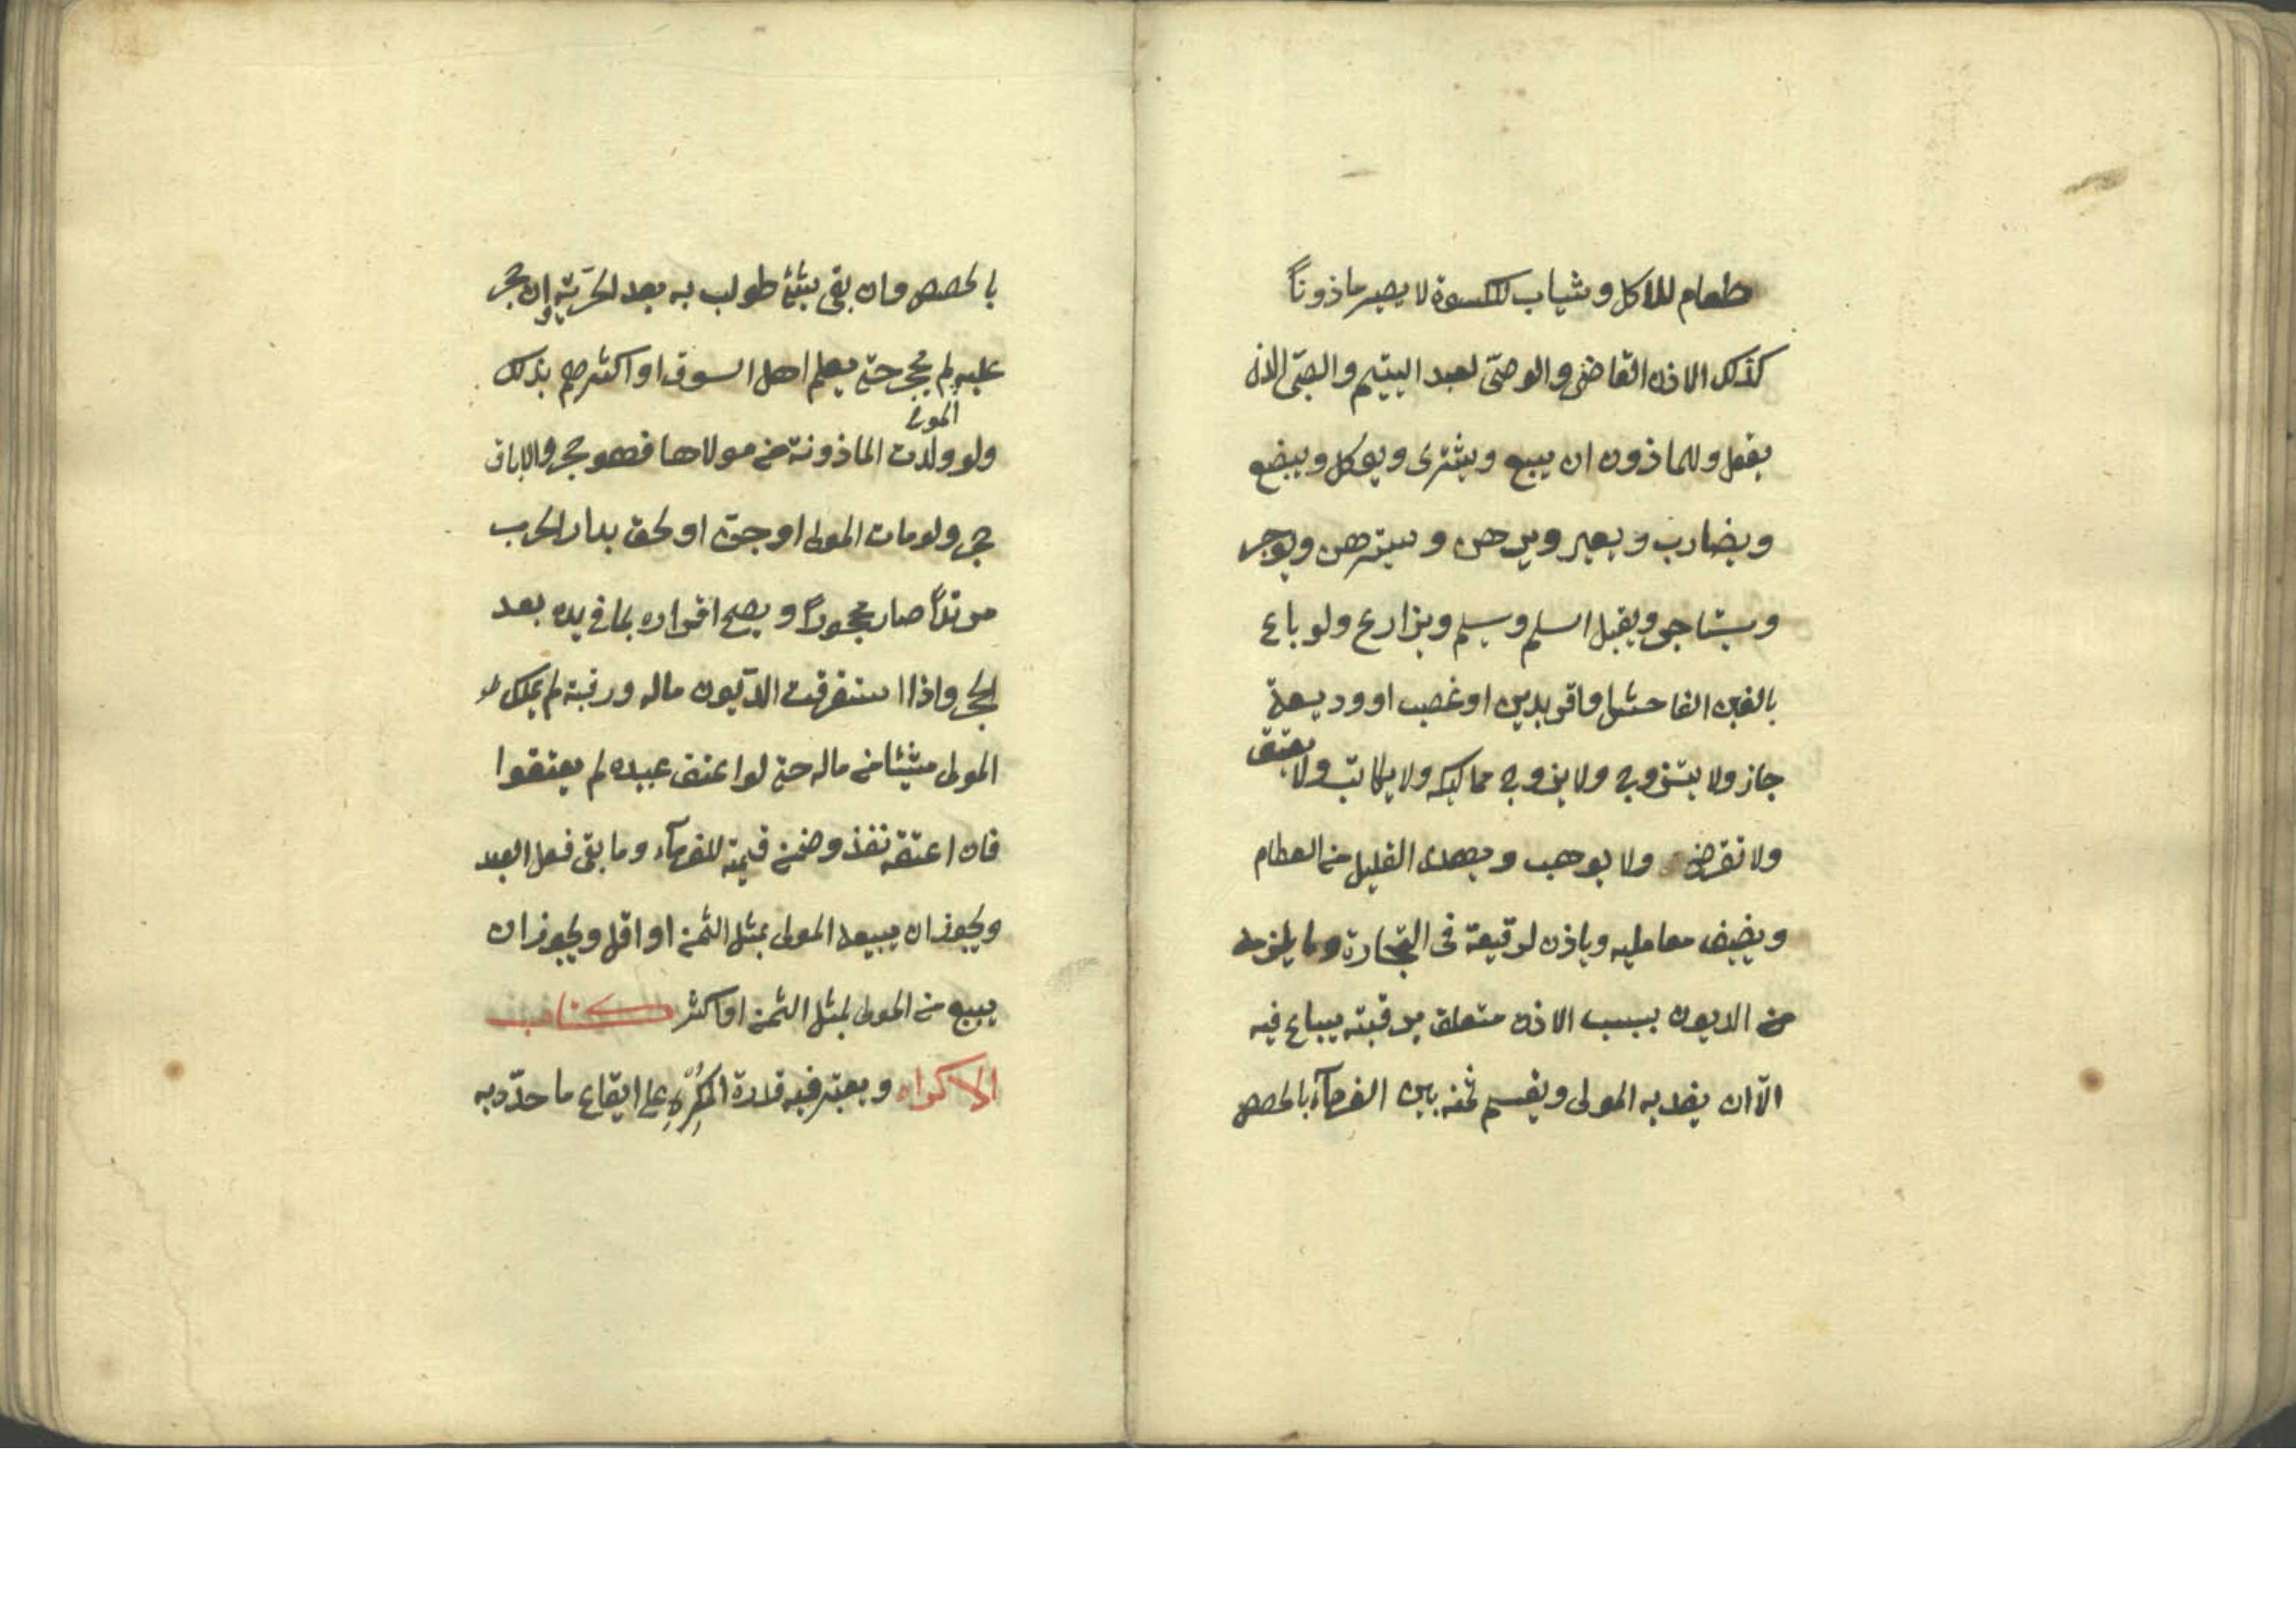 طعام للاكل وثياب للكسوة لا يصير ماذوناً
كذلك الاذن القاضى والوصىّ لعبد اليتيم والصبىّ الاذن
يفعل وللماذون ان يبيع ويشترى ويوكل ويبضع
ويضارب ويعير ويرهن ويسترهن ويوجر
ويستاجر ويقبل السلم وسلم ويزارع ولو باع
بالغبن الفاحش او اقر بدين او غصب او وديعة
جاز ولا يتزوج ولا يزوج مماليكه ولا يكاتب ولا يعتق
ولا تقرض ولا يوهب ويهدى القليل من الطعام
ويضيف معامليه وياذن لرقيقه فى التجارة وما يلزمه
من الديون بسبب الاذن متعلق برقبته يباع فيه
الاّ ان يفديه المولى ويقسم ثمنه بين الغرمآء بالحصص
بالحصص وان بقى شئ طولب به بعد الحرّيّة وان حجر
عليه لم يحجر حتى يعلم اهل السوق او اكثرهم بذلك
ولو ولدت الماذونة من مولاها فهو حجر والاباق
المولى
حجر ولو مات المولى او جنّ او لحق بدار الحرب
مرتدّاً صار محجوراً ويصح اقراره بما فى يده بعد
الحجر واذا استغرقت الدّيون ماله ورقبته لم يملك
المولى شيئا من ماله حتى لو اعتق عبيده لم يعتقوا
فان اعتقه نفذ وضمن قيمته للغرمآء وما بقى فعلى العبد
ويجوز ان يبيعه المولى بمثل الثمن او اقل ويجوز ان
يبيع من المولى بمثل الثمن او اكثر كتاب
الاكراه ويعتبر فيه قدرة المكرِه على ايقاع ما هدّد به